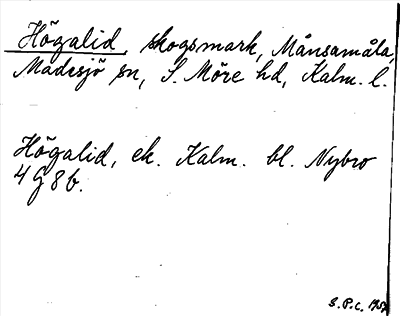 Högalid, skogsmark, Månsamåla,
Madesjö sn, S. Möre hd, Kalm. l.
Högalid, ek. Kalm. bl. Nybro
4 G 8 b.
S.P.C.